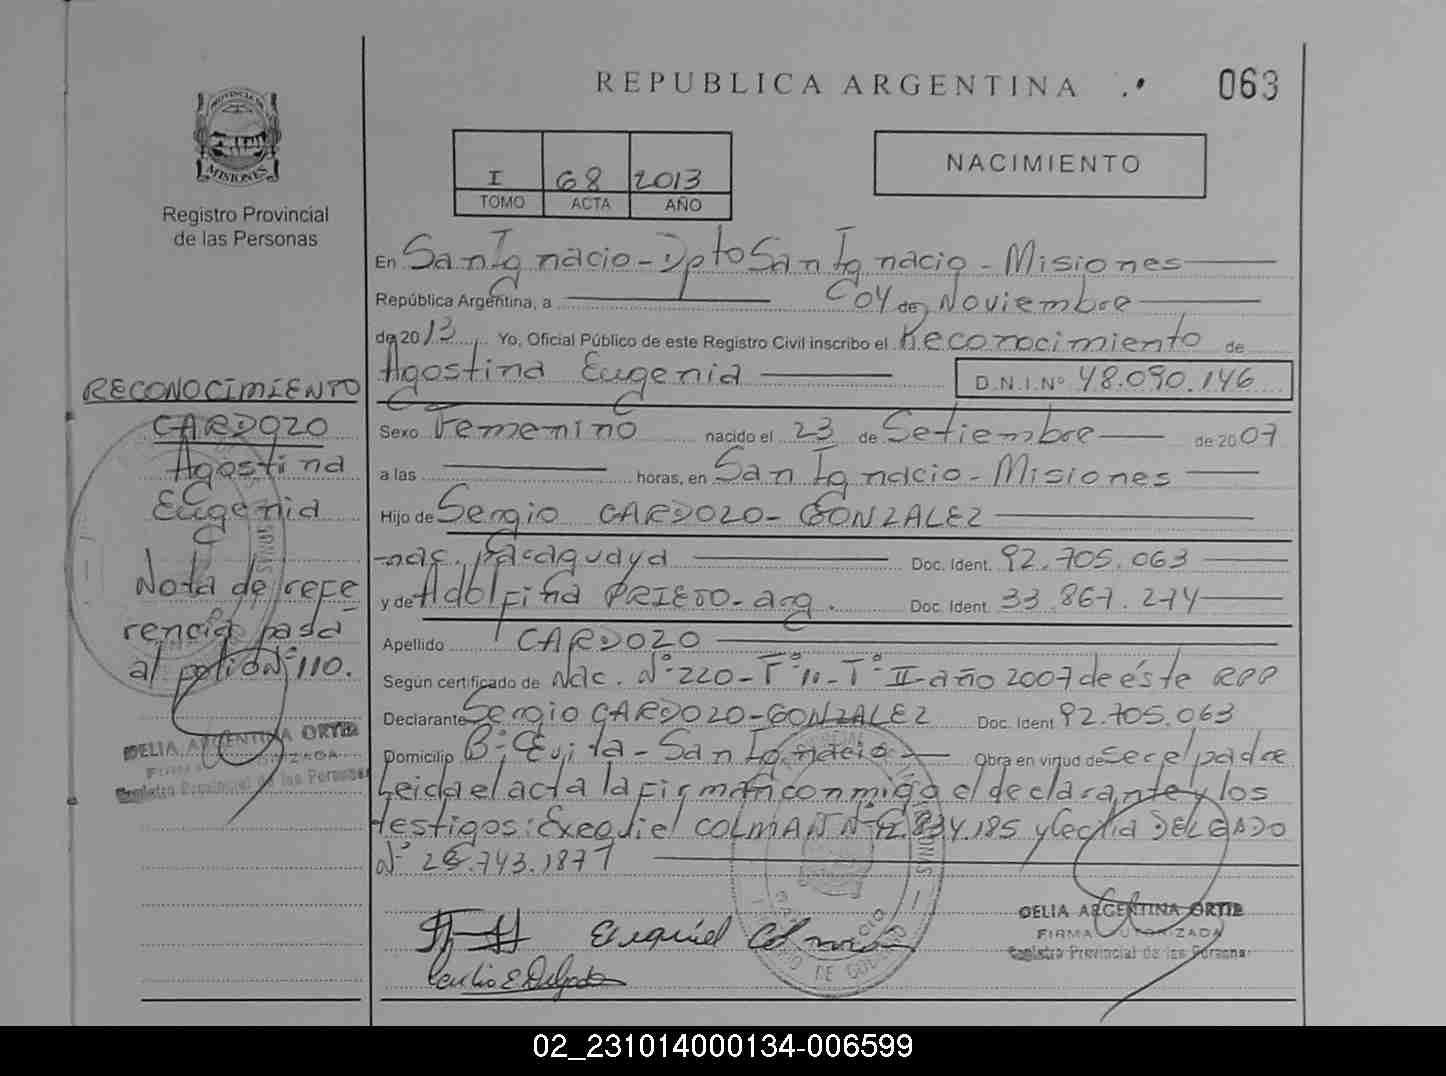 REPUBLICA ARGENTINA
063
PROVINCIA DE
MISIONES
Registro Provincial
de las Personas
I 68 2013
TOMO ACTA AÑO
NACIMIENTO
En San Ignacio - Dpto San Ignacio - Misiones
República Argentina, a 04 de Noviembre
de 2013 Yo, Oficial Público de este Registro Civil inscribo el Reconocimiento de
Agostina Eugenia D.N.I.Nº 48.090.146
Sexo Femenino nacido el 23 de Setiembre de 2007
a las horas, en San Ignacio - Misiones
Hijo de Sergio CARDOZO - GONZALEZ
nac. paraguaya Doc. Ident. 92.705.063
y de Adolfina PRIETO - arg. Doc. Ident. 33.867.274
Apellido CARDOZO
Según certificado de Nac. Nº 220 - Fº 11 - Tº II - año 2007 de éste RPP
Declarante Sergio CARDOZO - GONZALEZ Doc. Ident 92.705.063
Domicilio Bº Evita - San Ignacio Obra en virtud de ser el padre
Leida el acta la firman conmigo el declarante y los
testigos: Exequiel COLMAN Nº 834.185 y DELGADO
Nº
Exequiel Colman
DELIA ARGENTINA ORTIZ
FIRMA AUTORIZADA
Registro Provincial de las Personas
RECONOCIMIENTO
CARDOZO
Agostina
Eugenia
Nota de refe
rencia pasa
al folio Nº 110.
DELIA ARGENTINA ORTIZ
FIRMA AUTORIZADA
Registro Provincial de las Personas
02_231014000134-006599